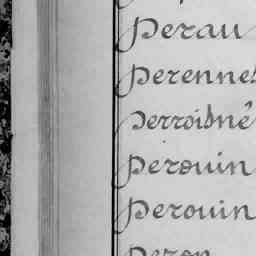 Perau
Perennes
Perroisné
Perouin
Perouin
Peron